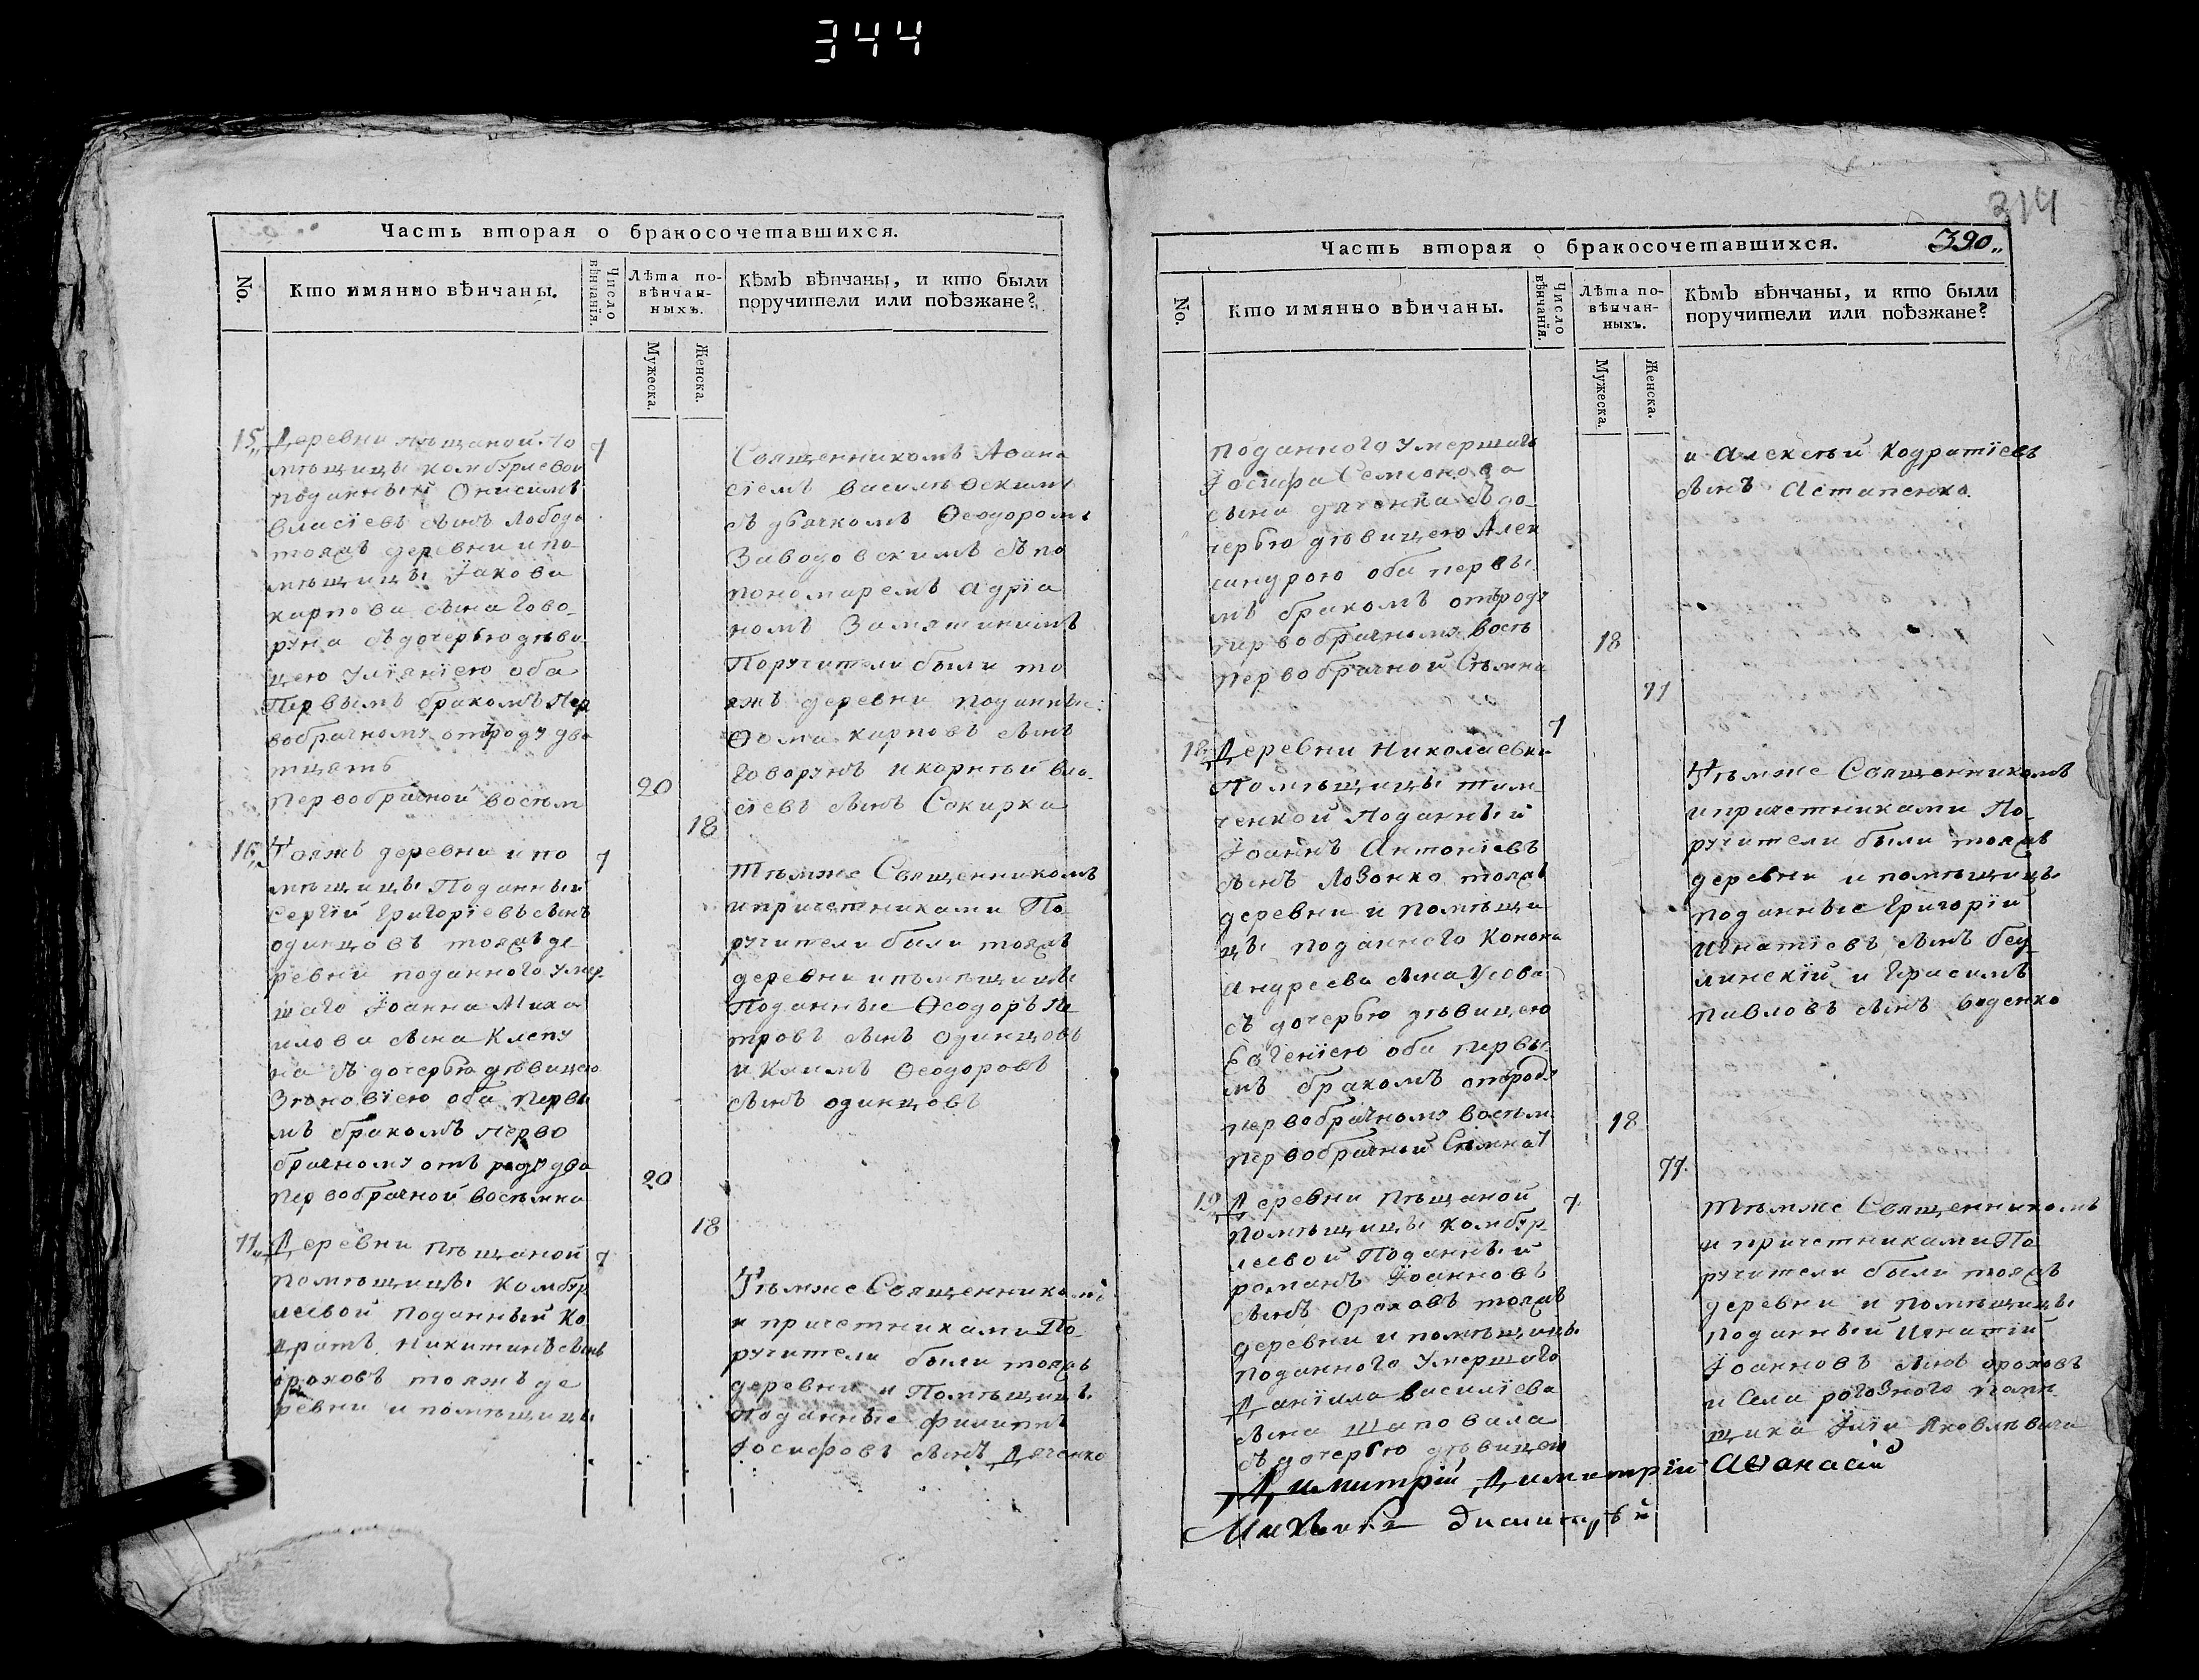 344
Часть вторая о бракосочетавшихся.
No.
Кто имянно вѣнчаны.
Число вѣнчанїя.
Лѣта по-
вѣнчан-
ныхъ.
Мужеска.
Женска.
Кѣмъ вѣнчаны, и кто были
поручители или поѣзжане?
15
Деревни Пѣщаной По
мѣщицы Комбурлеевой
подданный Онисимъ
Власїевъ сынъ Лобода
тояжъ деревни и по
мѣщицы Іакова
Карпова сына Гово-
руна съ дочерью дѣви
цею Улїянїею оба
Первымъ бракомъ Пер
вобрачному отъ роду два
тцеть
первобрачной восем
7
20
18
Священникомъ Аѳана
сїемъ
съ дьячкомъ Ѳеодоромъ
Заводовскимъ съ по
пономаремъ Адрїа
номъ Замятинимъ
Поручители были то
яжъ деревни поданные:
Ѳома Карповъ сынъ
Говорунъ и Корнѣй Вла
сїевъ сынъ Сокирка
16
Тояжъ деревни и по
мѣщицы Поданный
Сергїй Григорїевъ сынъ
Одинцовъ тояжъ де
ревни поданного умер
шаго Іоанна Миха
илова сына Клепу
на съ дочерью дѣвицею
Зѣновїею оба Первы
мъ бракомъ перво
брачному отъ роду два
Первобрачной восемна
7
20
18
Тѣмже Священникомъ
и причетниками По
ручители были тояжъ
деревни и помѣщицы
Поданные Ѳеодоръ Пе
тровъ сынъ Одинцовъ
и Климъ Ѳеодоровъ
сынъ Одинцовъ
17
Деревни Пѣщаной
Помѣщицы Комбур
леевой Поданный Ко
дратъ Никитинъ сынъ
Ороховъ тояжъ де
ревни и помѣщицы
7
Тѣмже Священникомъ
и причетниками По-
ручители были тояжъ
деревни и Помѣщицы
Поданные Филиппъ
Іосифовъ сынъ Дяченко
314
Часть вторая о бракосочетавшихся.
390„
No.
Кто имянно вѣнчаны.
Число вѣнчанїя.
Лѣта по-
вѣнчан-
ныхъ.
Мужеска.
Женска.
Кѣмъ вѣнчаны, и кто были
поручители или поѣзжане?
поданного умершаго
Іосифа Семионова
сына Дяченка съ до-
черью дѣвицею Алек
сандрою оба первы
мъ бракомъ отъ роду
первобрачному восѣ
Первобрачной Сѣмна
18
17
и Алексѣй Кодратїевъ
сынъ Астапенко
18
Деревни Николаевки
Помѣщицы Тим
ченкой Поданный
Іоаннъ Антонїевъ
сынъ Лозонко тояжъ
деревни и Помѣщи
цы поданного Конона
Андреева сына Усова
съ дочерью дѣвицею
Евгенїею оба первы
мъ бракомъ отъ роду
первобрачному восѣм
первобрачной Сѣмнат
7
18
17
Тѣмже Священникомъ
и причетниками По-
ручители были тояжъ
деревни и помѣщицы
поданные Григорїй
Игнатїевъ сынъ
и Герасимъ
Павловъ сынъ
19
Деревни Пѣщаной
Помѣщицы Комбур
леевой Поданный
Романъ Іоанновъ
сынъ Ороховъ тояжъ
деревни и помѣщицы
поданного умершаго
Данїила Василїева
сына Шаповала
съ дочерью дѣвицею
7
Тѣмже Священникомъ
и причетниками По
ручители были тояжъ
деревни и помѣщицы
поданный Игнатїй
Іоанновъ сынъ Ороховъ
и Села Роговного
Яковлѣвича
Димитрїй Димитрїй Аѳанасій